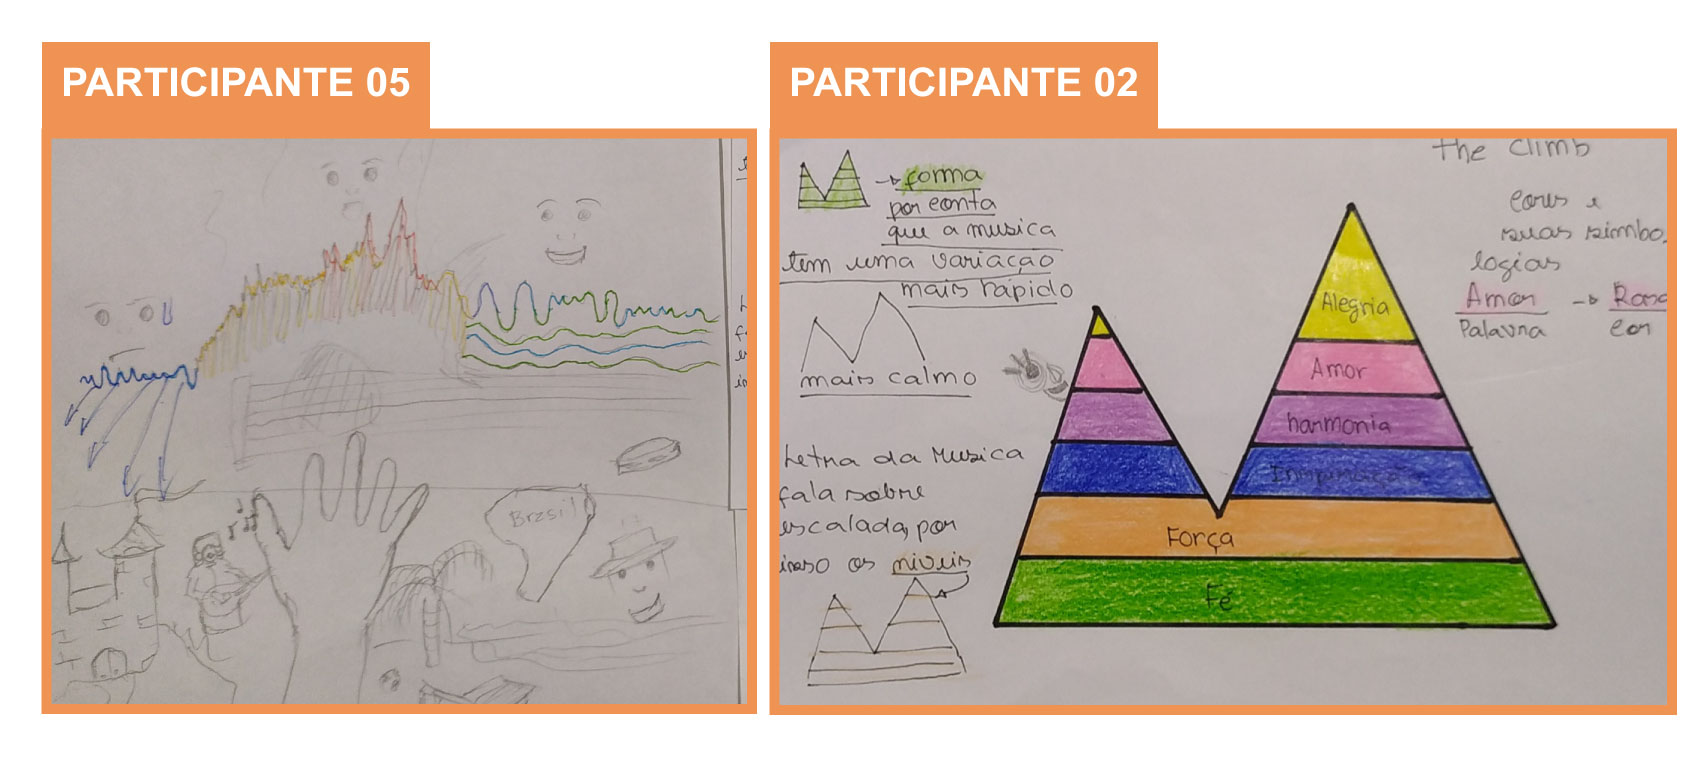 PARTICIPANTE 05
Brasil
PARTICIPANTE 02
forma
por conta
que a musica
tem uma variação
mais rápido
mais calmo
Letra da Musica
fala sobre
escalada, por
isso os niveis
the climb
cores e
suas simbo.
logias
Amor → Rosa
Palavra cor
Alegria
Amor
harmonia
Força
Fé